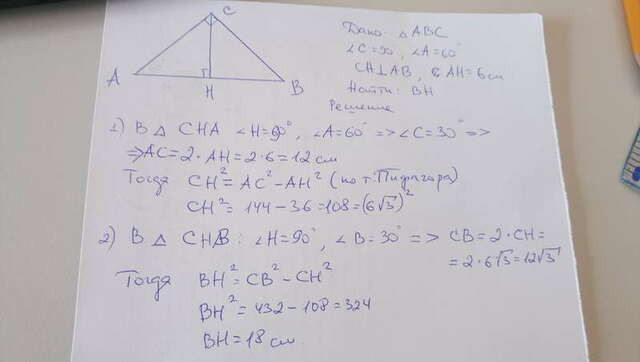 C
A
H
B
Дано: △ABC
∠C=90°, ∠A=60°
CH⊥AB, AH=6см
Найти: BH
Решение
1) В △ CHA ∠H=90°, ∠A=60° => ∠C=30° =>
=> AC=2·AH=2·6=12 см
Тогда CH²=AC²-AH² (по т. Пифагора)
CH²=144-36=108=(6√3)²
2) В △ CHB: ∠H=90°, ∠B=30° => CB=2·CH=
=2·6√3=12√3
Тогда BH²=CB²-CH²
BH²=432-108=324
BH=18 см.